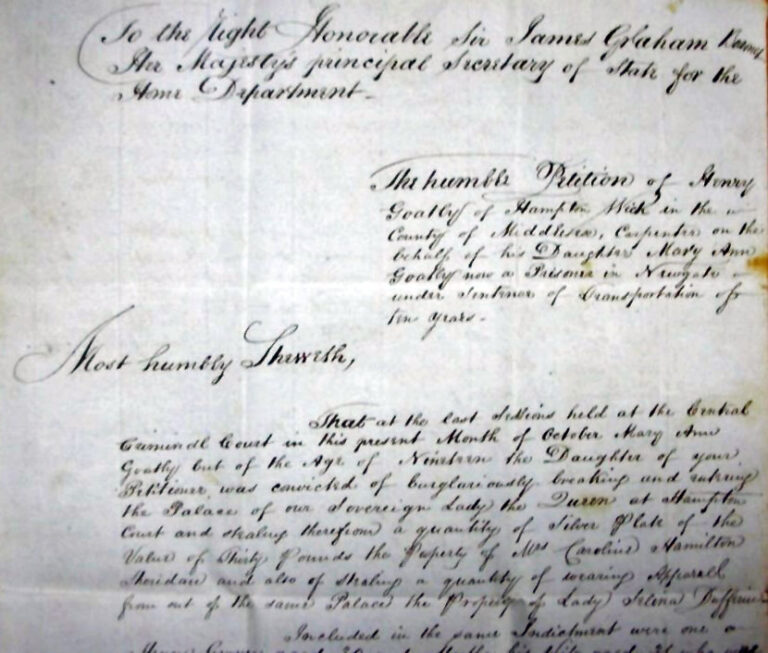 To the Right Honorable Sir James Graham
Her Majesty's principal Secretary of State for the
Home Department
The humble Petition of Henry
Goatly of Hampton Wick in the
County of Middlesex, Carpenter on the
behalf of his Daughter Mary Ann
Goatly now a Prisoner in Newgate
under Sentence of Transportation of
ten years
Most humbly Sheweth,
That at the last Sessions held at the Central
Criminal Court in this present Month of October Mary Ann
Goatly but of the Age of Nineteen the Daughter of your
Petitioner, was convicted of burglariously breaking and entering
the Palace of our Sovereign Lady the Queen at Hampton
Court and stealing therefrom a quantity of Silver Plate of the
Value of Thirty Pounds the Property of Mrs Caroline Hamilton
Sheridan and also of stealing a quantity of wearing Apparell
from out of the same Palace the Property of Lady Selina Dufferin
Included in the same Indictment were one